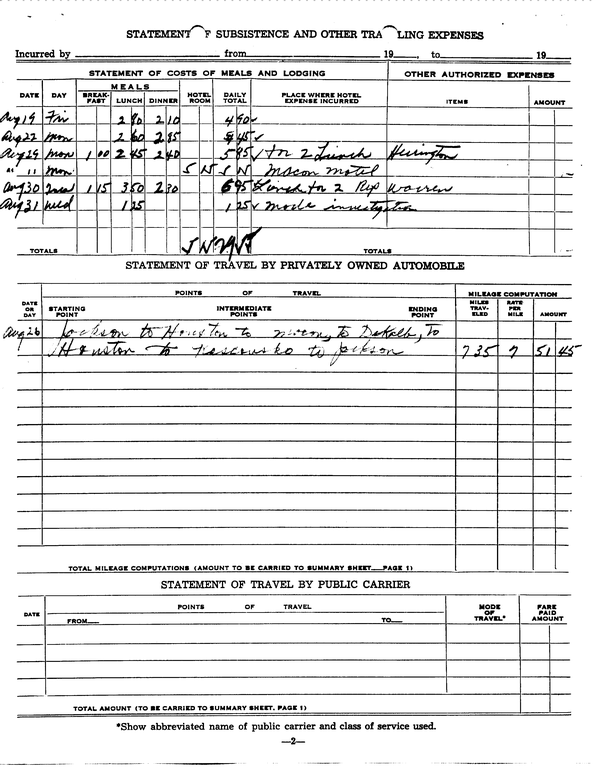 STATEMENT OF SUBSISTENCE AND OTHER TRA LING EXPENSES
Incurred by from 19 , to 19
STATEMENT OF COSTS OF MEALS AND LODGING OTHER AUTHORIZED EXPENSES
DATE DAY MEALS BREAK-FAST LUNCH DINNER HOTEL ROOM DAILY TOTAL PLACE WHERE HOTEL EXPENSE INCURRED ITEMS AMOUNT
Aug 19 Fri 2 80 2 10 4 90
Aug 22 Mon 2 60 2 85 5 45
Aug 29 Mon 1 00 2 45 2 40 5 85 for 2 Lunch
" 11 Mon 5 N 5 N Macon Motel
Aug 30 1 15 3 50 2 30 6 95 Lunch for 2 Rep Warren
Aug 31 Wed 1 25 1 25 made investigation
TOTALS TOTALS
STATEMENT OF TRAVEL BY PRIVATELY OWNED AUTOMOBILE
POINTS OF TRAVEL MILEAGE COMPUTATION
DATE OR DAY STARTING POINT INTERMEDIATE POINTS ENDING POINT MILES TRAV-ELED RATE PER MILE AMOUNT
Aug 26 Jackson to Houston to Macon, to DeKalb, to
Houston to to Jackson 735 7 51 45
TOTAL MILEAGE COMPUTATIONS (AMOUNT TO BE CARRIED TO SUMMARY SHEET PAGE 1)
STATEMENT OF TRAVEL BY PUBLIC CARRIER
DATE POINTS OF TRAVEL MODE OF TRAVEL* FARE PAID AMOUNT
FROM TO
TOTAL AMOUNT (TO BE CARRIED TO SUMMARY SHEET, PAGE 1)
*Show abbreviated name of public carrier and class of service used.
—2—